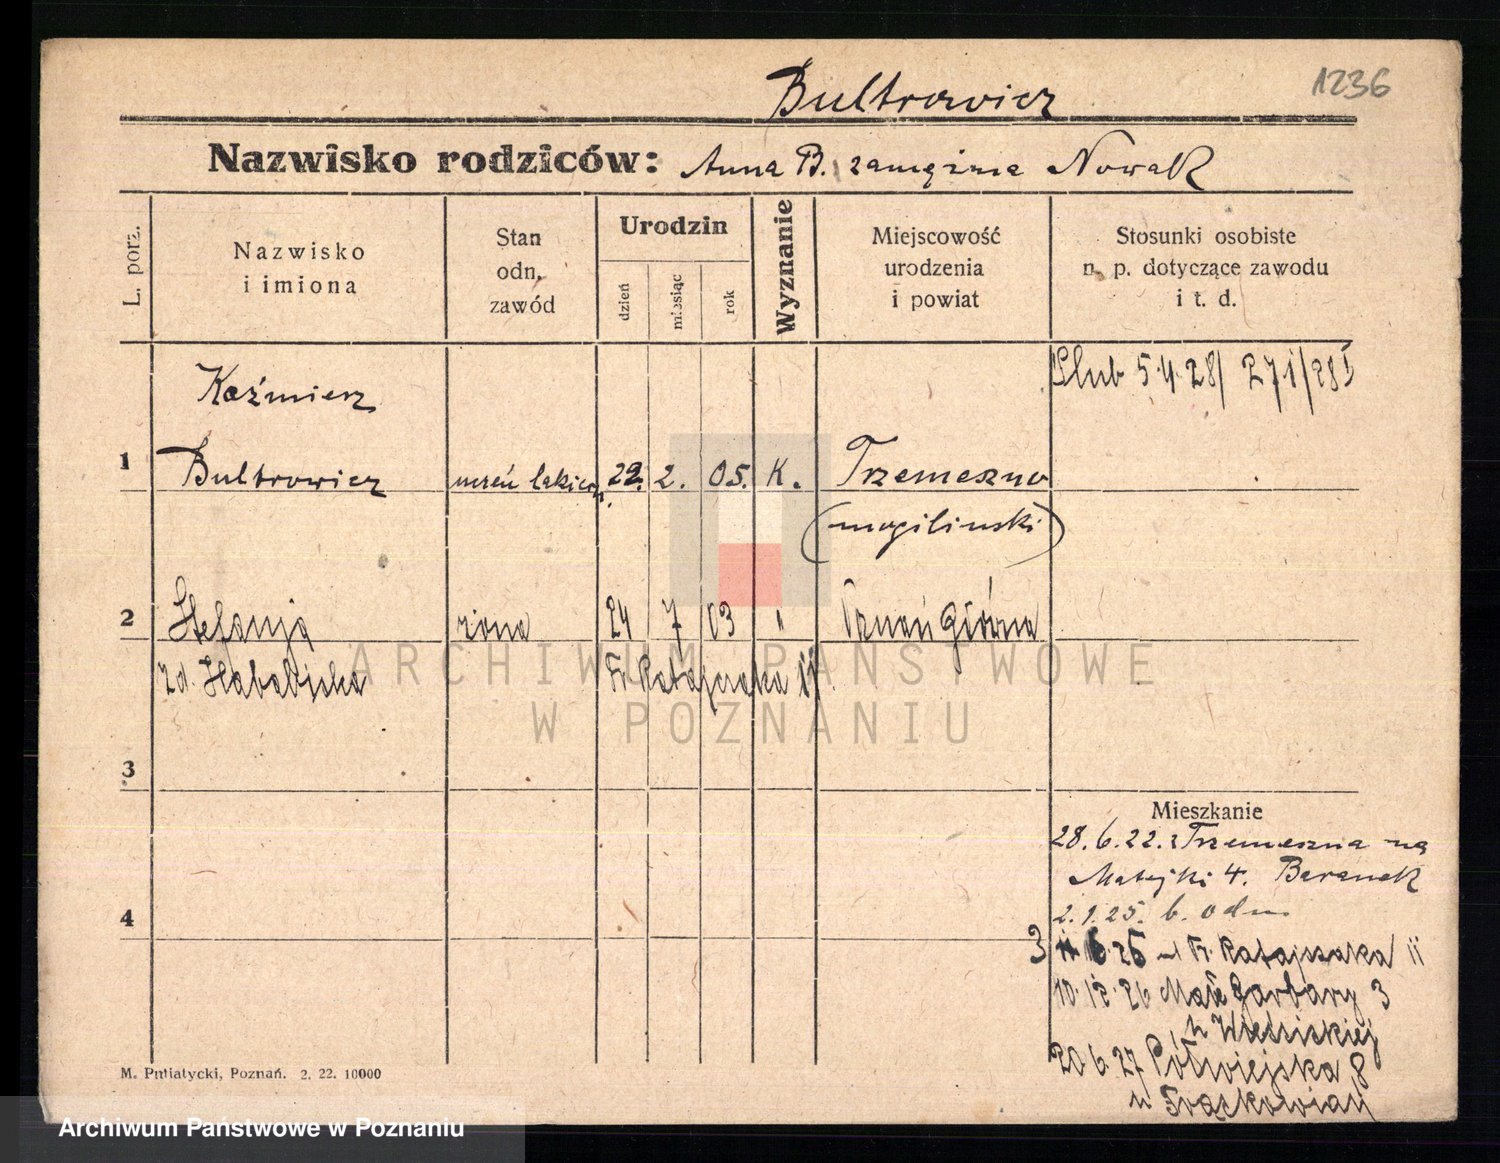 Bultrowicz
1236
Nazwisko rodziców: Anna B. zamężna Nowak
L. porz.
Nazwisko
i imiona
Stan
odn.
zawód
Urodzin
dzień
miesiąc
rok
Wyznanie
Miejscowość
urodzenia
i powiat
Stosunki osobiste
n. p. dotyczące zawodu
i t. d.
Ślub 5.4.28/ 271/28 I
Kaźmierz
1 Bultrowicz uczeń 29. 2. 05. K. Trzemeszno
(mogilinski)
2 Stefanja żona 24 7 03 " Poznań Główna
zd. Fr. Ratajczaka 11
ARCHIWUM PAŃSTWOWE
W POZNANIU
3
Mieszkanie
28.6.22. z Trzemeszna na
Matejki 4. Baranek
4
2.1.25. b. odm.
3 6.26 Fr. Ratajczaka 11
10.12.26 Małe Garbary 3
20.6.27 Półwiejska 8
M. Putiatycki, Poznań. 2. 22. 10000
Archiwum Państwowe w Poznaniu